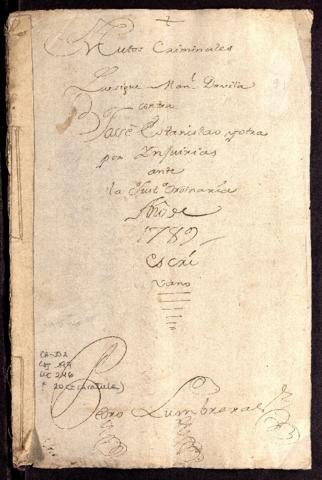 Autos Criminales
Que sigue Man.l Davila
contra
Estanislao y otra
por Injurias
ante
la Just.a Ordinaria
Año de
1789
Escri
vano
20 cc (caratula)
Pedro Lumbreras